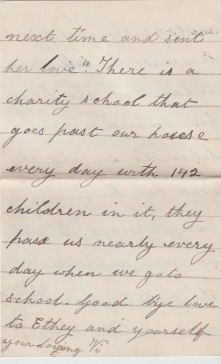 next time and sent
her love". There is a
charity school that
goes past our house
every day with 142
children in it, they
pass us nearly every
day when we goto
school. Good bye love
to Ethey and yourself
your loving Vi